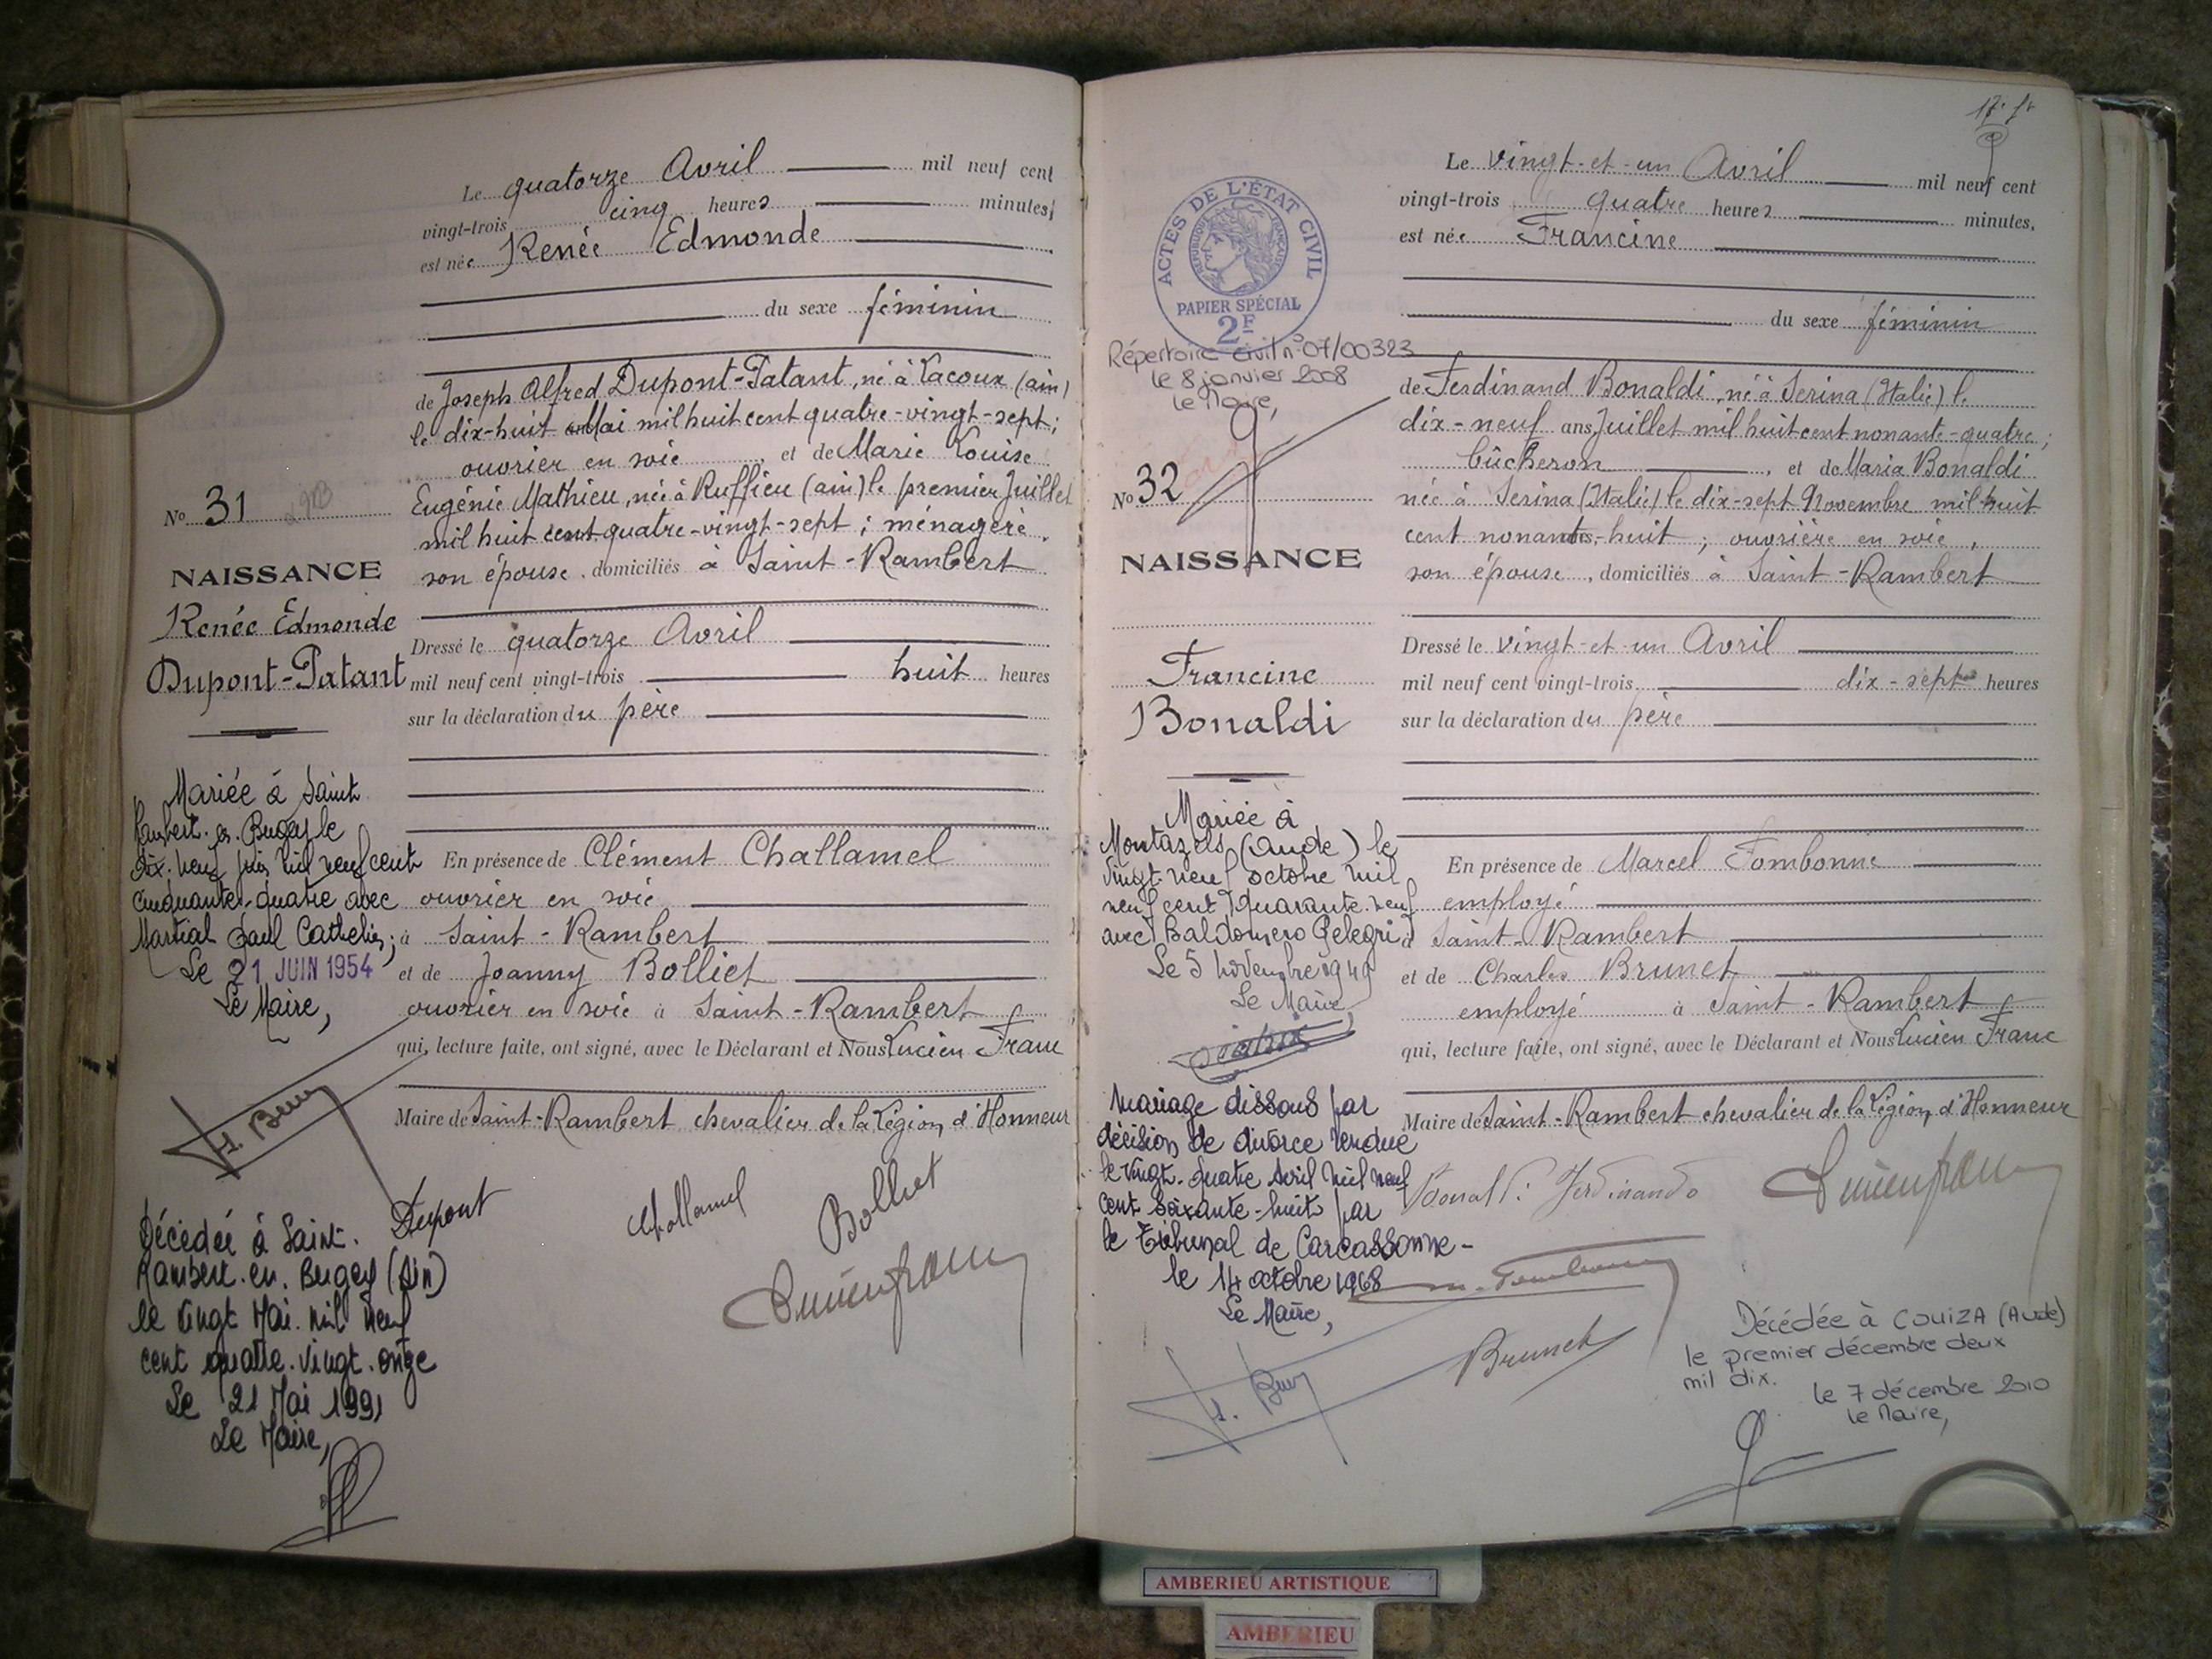 Le quatorze Avril mil neuf cent
vingt-trois cinq heures minutes,
est née Renée Edmonde
du sexe féminin
de Joseph Alfred Dupont-Patant, né à Lacoux (ain)
le dix-huit Mai mil huit cent quatre-vingt-sept;
ouvrier en soie, et de Marie Louise
Eugénie Mathieu, née à Ruffieu (ain) le premier Juillet
mil huit cent quatre-vingt-sept; ménagère,
son épouse, domiciliés à Saint-Rambert
No 31
NAISSANCE
Renée Edmonde
Dupont-Patant
Dressé le quatorze Avril
mil neuf cent vingt-trois huit heures
sur la déclaration du père
En présence de Clément Challamel
ouvrier en soie
à Saint-Rambert
et de Joanny Bolliet
ouvrier en soie à Saint-Rambert
qui, lecture faite, ont signé, avec le Déclarant et Nous Lucien Franc
Maire de Saint-Rambert chevalier de la Légion d'Honneur
Dupont
Challamel
Bolliet
Lucien Franc
Mariée à Saint
Rambert-en-Bugey le
dix-neuf juin mil neuf cent
cinquante-quatre avec
Martial Paul Cathelin;
Le 21 JUIN 1954
Le Maire,
Décédée à Saint-
Rambert-en-Bugey (Ain)
le vingt Mai mil neuf
cent quatre-vingt-onze
Le 21 Mai 1991
Le Maire,
Le vingt-et-un Avril mil neuf cent
vingt-trois quatre heures minutes,
est née Francine
du sexe féminin
de Ferdinand Bonaldi, né à Serina (Italie) le
dix-neuf ans Juillet mil huit cent nonante-quatre;
bûcheron, et de Maria Bonaldi
née à Serina (Italie) le dix-sept Novembre mil huit
cent nonante-huit; ouvrière en soie,
son épouse, domiciliés à Saint-Rambert
ACTES DE L'ÉTAT CIVIL
RÉPUBLIQUE FRANÇAISE
PAPIER SPÉCIAL
2F
Répertoire civil n° 07/00323
le 8 janvier 2008
le Maire,
No 32
NAISSANCE
Francine
Bonaldi
Dressé le vingt-et-un Avril
mil neuf cent vingt-trois, dix-sept heures
sur la déclaration du père
En présence de Marcel Fombonne
employé
à Saint-Rambert
et de Charles Brunet
employé à Saint-Rambert
qui, lecture faite, ont signé, avec le Déclarant et Nous Lucien Franc
Maire de Saint-Rambert chevalier de la Légion d'Honneur
Bonaldi Ferdinando
Lucien Franc
Brunet
Mariée à
Montazels (Aude) le
vingt-neuf octobre mil
neuf cent quarante-neuf
avec Baldomero Pelegri
Le 5 novembre 1949
Le Maire,
Mariage dissous par
décision de divorce rendue
le vingt-quatre Avril mil neuf
cent soixante-huit par
le Tribunal de Carcassonne-
le 14 octobre 1968
Le Maire,
Décédée à COUIZA (Aude)
le premier décembre deux
mil dix.
le 7 décembre 2010
le Maire,
AMBERIEU ARTISTIQUE
AMBERIEU